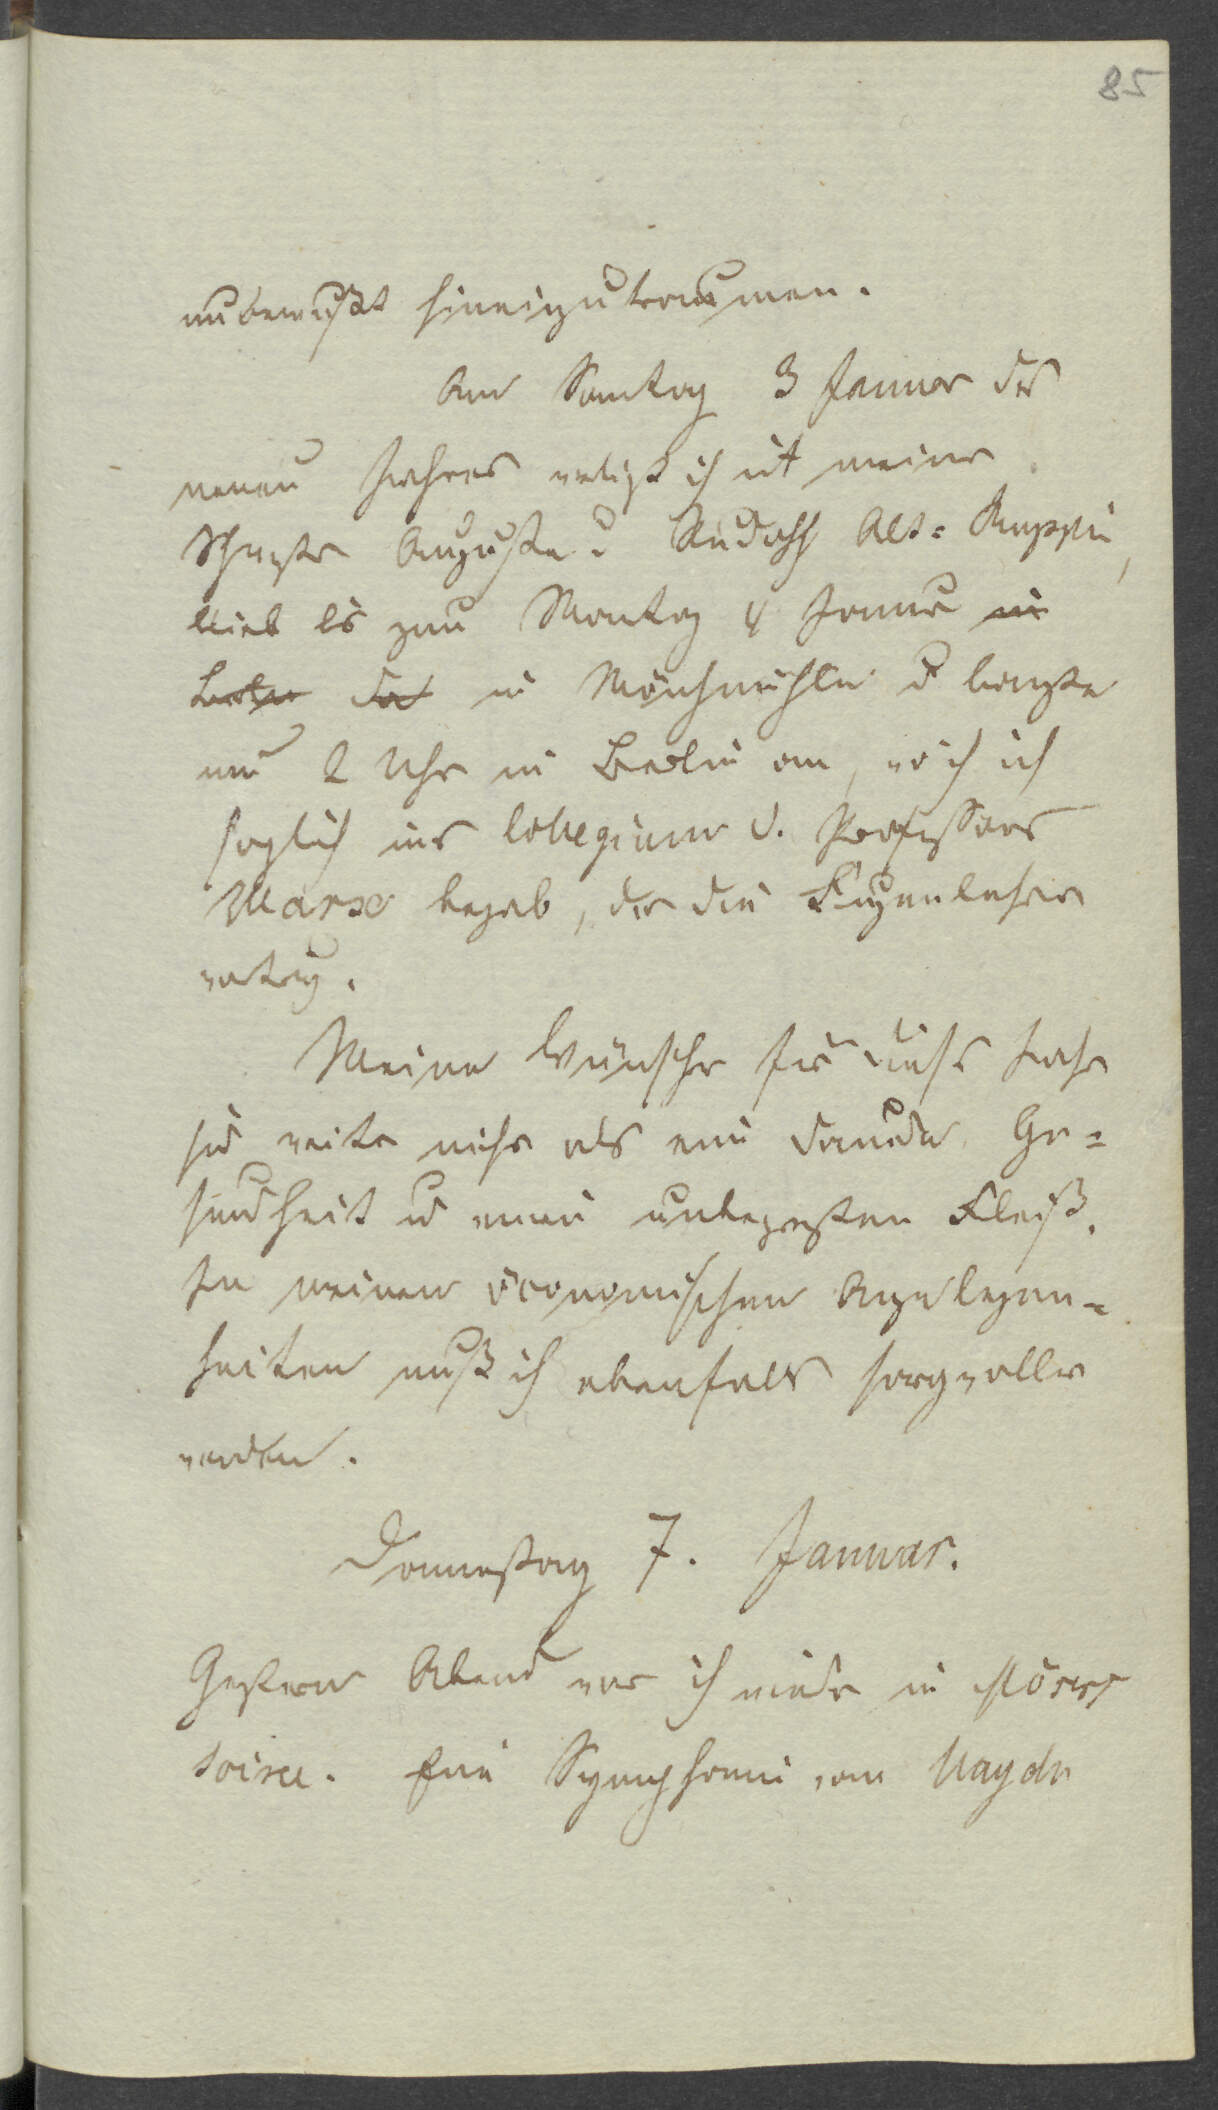 85
unbewußt hineinzuträumen.
Am Sontag 3 Januar des
neuen Jahres verließ ich mit meiner
Schwester Auguste u Rudolph Alt-Ruppin,
blieb bis zum Montag 4 Januar in
Berlin da in Mönchmühle u langte
um 2 Uhr in Berlin an, wo ich ich
sogleich ins Collegium d. Professors
Marx begab, der die Fugenlehre
vortrug.
Meine Wünsche für dieses Jahr
sind weiter nichts als eine dauernde Ge-
sundheit u einen unbegrenzten Fleiß.
In meinen öconomischen Angelegen-
heiten muß ich ebenfalls sorgvoller
werden.
Donnerstag 7. Januar.
Gestern Abend war ich wieder in Mösers
soirée. Eine Symphonie von Haydn